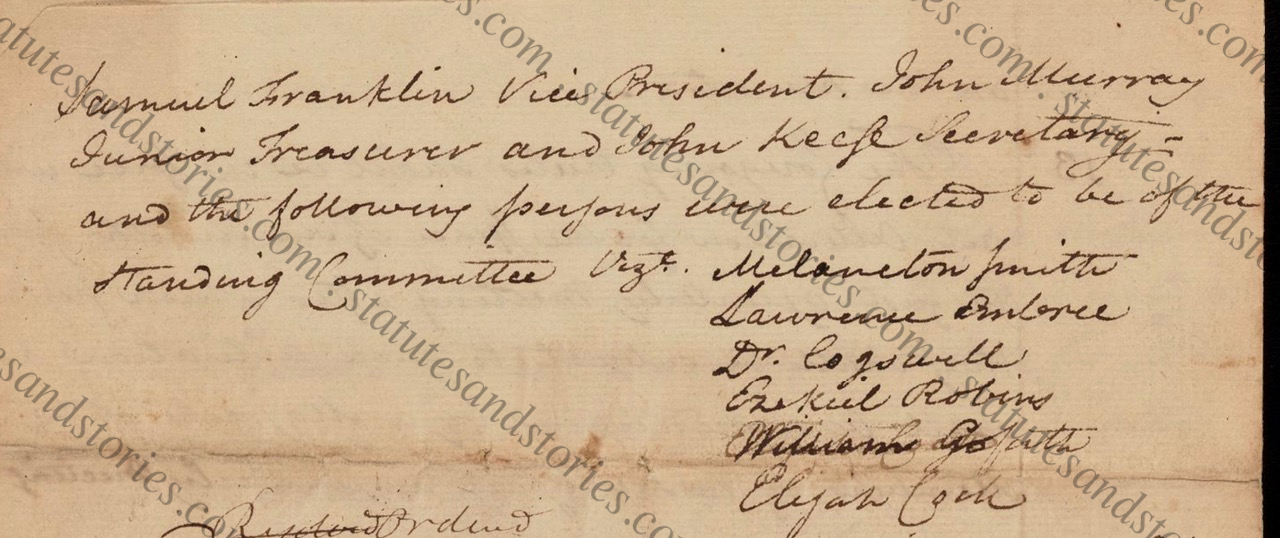 Samuel Franklin Vice President. John Murray
Junior Treasurer and John Keese Secretary -
and the following persons were elected to be of the
standing Committee Vizt. Melancton Smith
Lawrence Embree
Dr. Cogswell
Ezekiel Robins
William Goforth
Elijah Cock
Resolved Ordered
statutesandstories.com